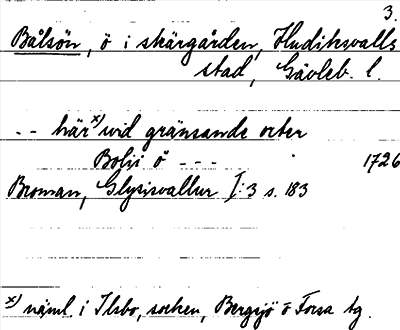 3.
Bålsön, ö i skärgården, Hudiksvalls
stad, Gävleb. l.
-- här x) vid gränsande orter
Bolsi ö --- 1726
Broman, Glysisvallur I:3 s. 183
x) näml. i Ilsbo, socken, Bergsjö o Forsa tg.